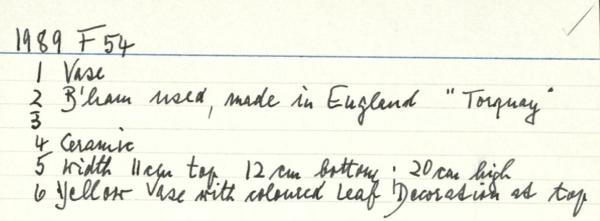 1989 F 54
1 Vase
2 B'ham used, made in England "Torquay"
3
4 Ceramic
5 Width 11cm top 12 cm bottom ; 20 cm high
6 Yellow Vase with coloured Leaf Decoration at top